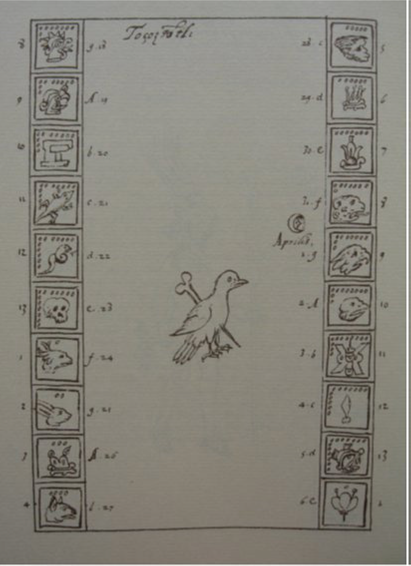 Toçoztōtli
8 g. 18
9 A. 19
10 b. 20
11 c. 21
12 d. 22
13 e. 23
1 f. 24
2 g. 25
3 A. 26
4 b. 27
28. c 5
29. d 6
30. e 7
31. f 8
Aprilis.
1. g 9
2. A 10
3. b 11
4. c 12
5. d 13
6. e 1